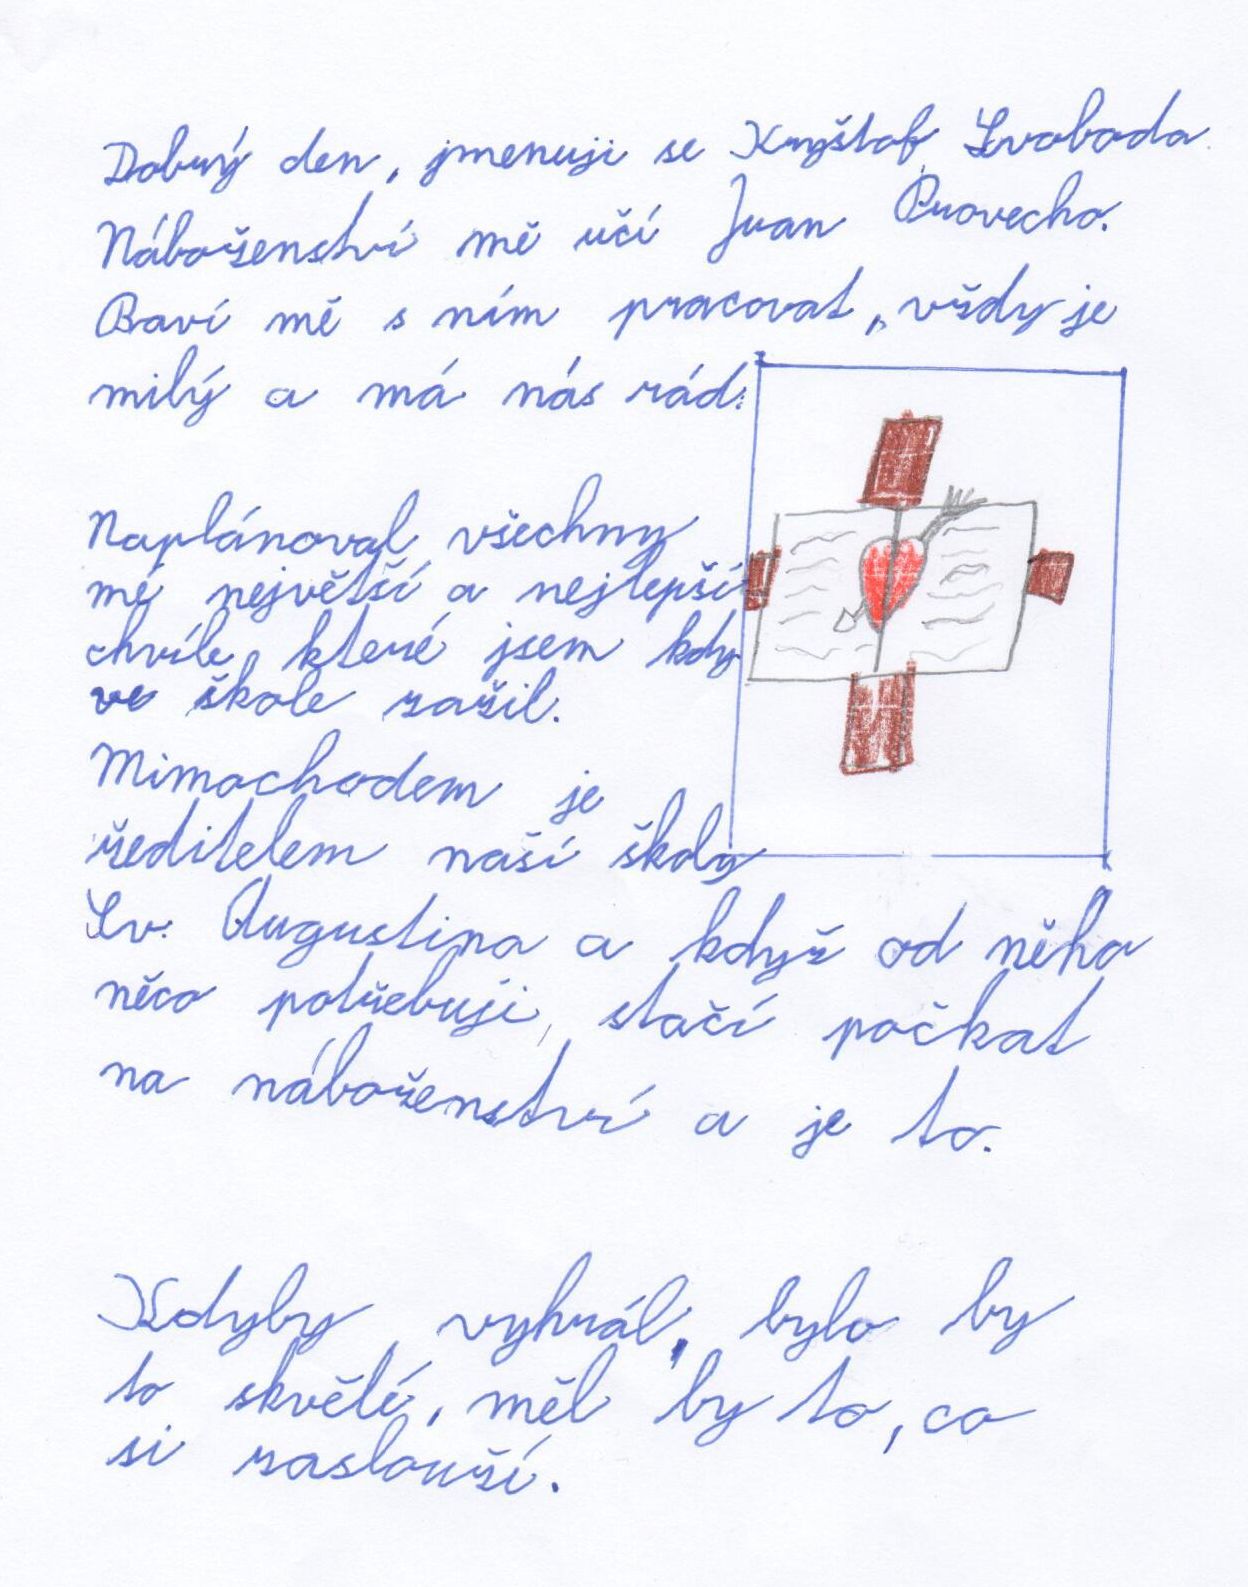 Dobrý den, jmenuji se Kryštof Svoboda.
Náboženství mě učí Juan Provecho.
Baví mě s ním pracovat, vždy je
milý a má nás rád.
Naplánoval všechny
mé největší a nejlepší
chvíle, které jsem kdy
ve škole zažil.
Mimochodem je
ředitelem naší školy
Sv. Augustina a když od něho
něco potřebuji, stačí počkat
na náboženství a je to.
Kdyby vyhrál, bylo by
to skvělé, měl by to, co
si zaslouží.